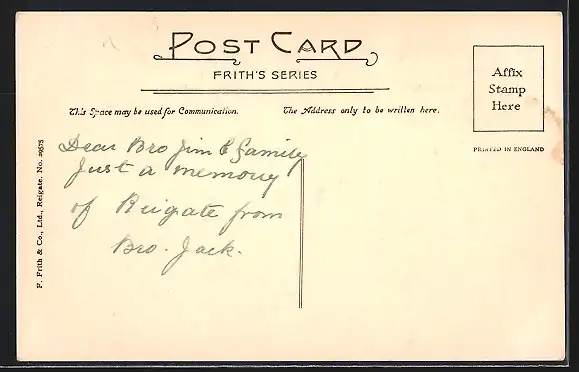 POST CARD
FRITH'S SERIES
This Space may be used for Communication.
The Address only to be written here.
Affix
Stamp
Here
PRINTED IN ENGLAND
Dear Bro Jim & Family
Just a memory
of Reigate from
Bro. Jack.
F. Frith & Co., Ltd., Reigate. No.